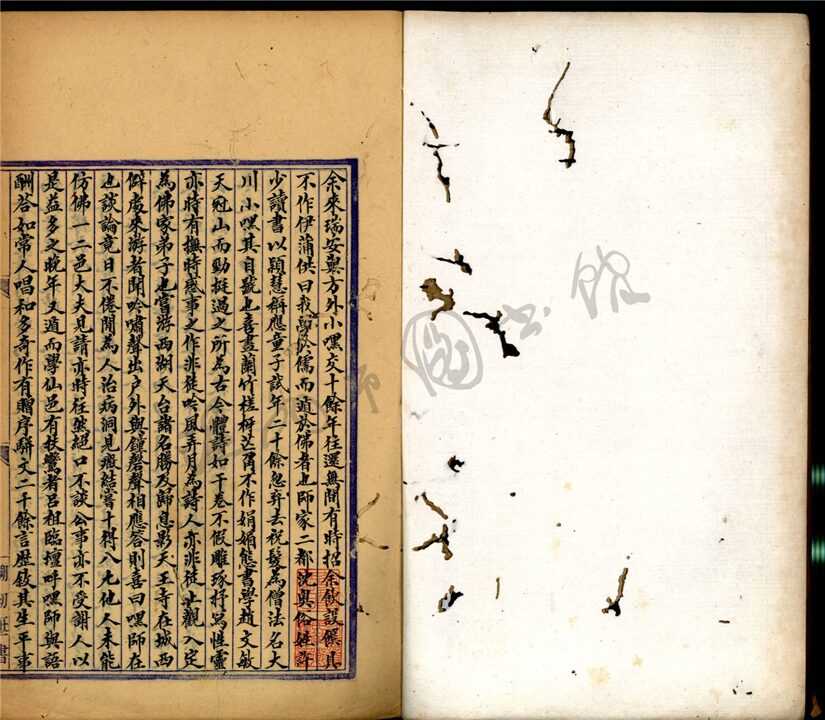 余來瑞安與方外小嘿交十餘年往還無間有時招余飲設饌具
不作伊蒲供曰我歸於儒而遁於佛者也師家二都沈奧俗姓許
少讀書以穎慧稱應童子試年二十餘忽弃去祝髮為僧法名大
川小嘿其自號也喜畫蘭竹槎枒芒角不作娟媚態書學趙文敏
天冠山而勁挺過之所為古今體詩如干卷不假雕琢抒寫性靈
亦時有撫時感事之作非徒吟風弄月為詩人亦非徒止觀入定
為佛家弟子也嘗游西湖天台諸名勝及歸息影天王寺在城西
僻處來游者聞吟嘯聲出戶外與鐘磬聲相應答則喜曰嘿師在
也談論竟日不倦間為人治病洞見癥結嘗十得八九他人未能
仿佛一二邑大夫見請亦時往然絕口不談公事亦不受謝人以
是益多之晚年又遁而學仙邑有扶鸞者呂祖臨壇呼嘿師與語
酬答如常人唱和多奇作有贈序駢文二千餘言歷敘其生平事
圖書館